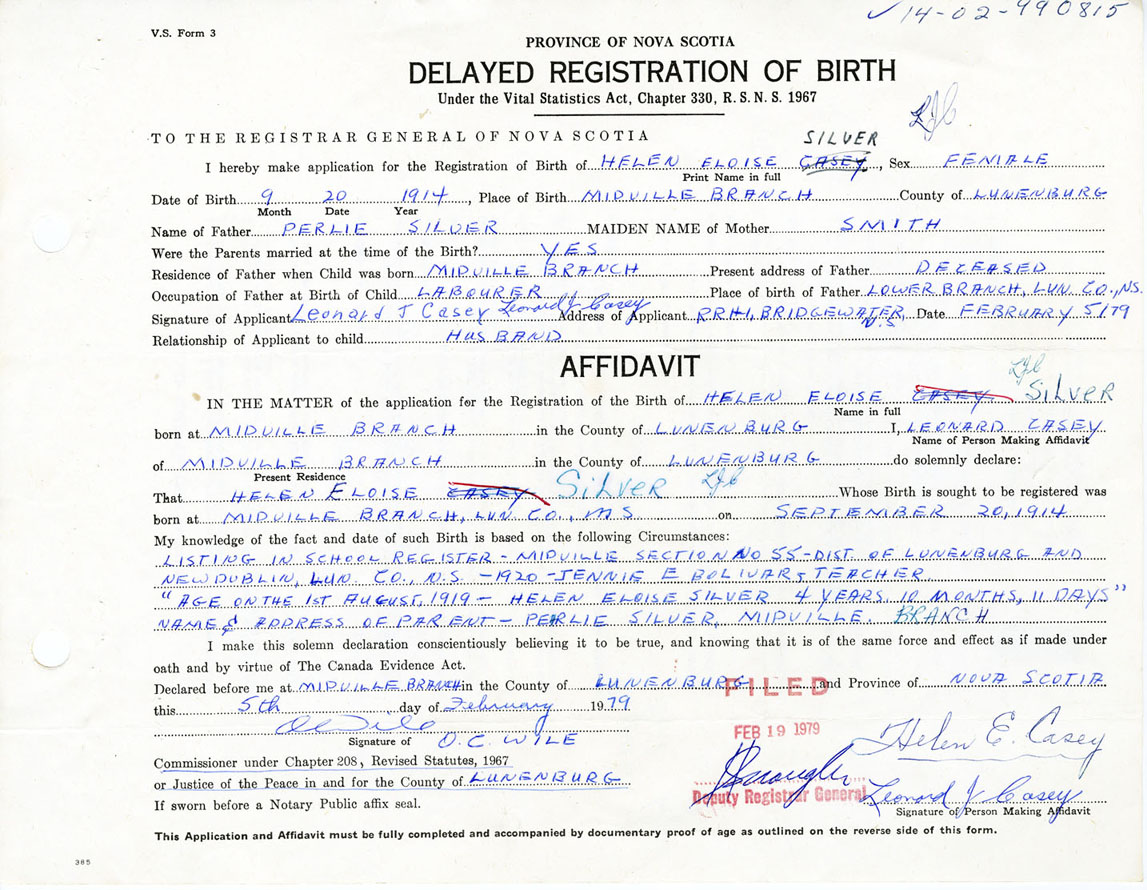 ✓ 14-02-990815
V.S. Form 3
PROVINCE OF NOVA SCOTIA
DELAYED REGISTRATION OF BIRTH
Under the Vital Statistics Act, Chapter 330, R.S.N.S. 1967
LJC
TO THE REGISTRAR GENERAL OF NOVA SCOTIA SILVER
I hereby make application for the Registration of Birth of HELEN ELOISE CASEY, Sex FEMALE
Print Name in full
Date of Birth 9 20 1914, Place of Birth MIDVILLE BRANCH County of LUNENBURG
Month Date Year
Name of Father PERLIE SILVER MAIDEN NAME of Mother SMITH
Were the Parents married at the time of the Birth? YES
Residence of Father when Child was born MIDVILLE BRANCH Present address of Father DECEASED
Occupation of Father at Birth of Child LABOURER Place of birth of Father LOWER BRANCH, LUN. CO., NS.
Signature of Applicant Leonard J Casey Leonard J Casey Address of Applicant RR#1, BRIDGEWATER, N.S. Date FEBRUARY 5/79
Relationship of Applicant to child HUSBAND
AFFIDAVIT
LJC
IN THE MATTER of the application for the Registration of the Birth of HELEN ELOISE CASEY SILVER
Name in full
born at MIDVILLE BRANCH in the County of LUNENBURG I, LEONARD CASEY
Name of Person Making Affidavit
of MIDVILLE BRANCH in the County of LUNENBURG do solemnly declare:
Present Residence
That HELEN ELOISE CASEY SILVER LJC Whose Birth is sought to be registered was
born at MIDVILLE BRANCH, LUN. CO., N.S on SEPTEMBER 20, 1914
My knowledge of the fact and date of such Birth is based on the following Circumstances:
LISTING IN SCHOOL REGISTER - MIDVILLE SECTION NO 55 - DIST. OF LUNENBURG AND
NEW DUBLIN, LUN. CO., N.S. - 1920 - JENNIE E BOLIVAR, TEACHER.
"AGE ON THE 1ST AUGUST, 1919 - HELEN ELOISE SILVER 4 YEARS, 10 MONTHS, 11 DAYS"
NAME & ADDRESS OF PARENT - PERLIE SILVER, MIDVILLE. BRANCH
I make this solemn declaration conscientiously believing it to be true, and knowing that it is of the same force and effect as if made under
oath and by virtue of The Canada Evidence Act.
Declared before me at MIDVILLE BRANCH in the County of LUNENBURG and Province of NOVA SCOTIA
FILED
this 5th day of February 1979
FEB 19 1979
OC Wile
Helen E. Casey
Signature of O.C. WILE
Commissioner under Chapter 208, Revised Statutes, 1967
or Justice of the Peace in and for the County of LUNENBURG
Deputy Registrar General
Leonard J Casey
If sworn before a Notary Public affix seal.
Signature of Person Making Affidavit
This Application and Affidavit must be fully completed and accompanied by documentary proof of age as outlined on the reverse side of this form.
385